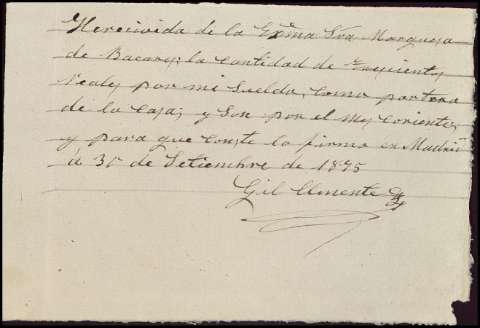 He recivida de la Exma Sra Marquesa
de Bacares la Cantidad de Trescientos
reales por mi Sueldo, Como portero
de la Casa, y Son por el mes Coriente,
y para que Conste lo firmo en Madrid
á 30 de Setiembre de 1875
Gil Clmente